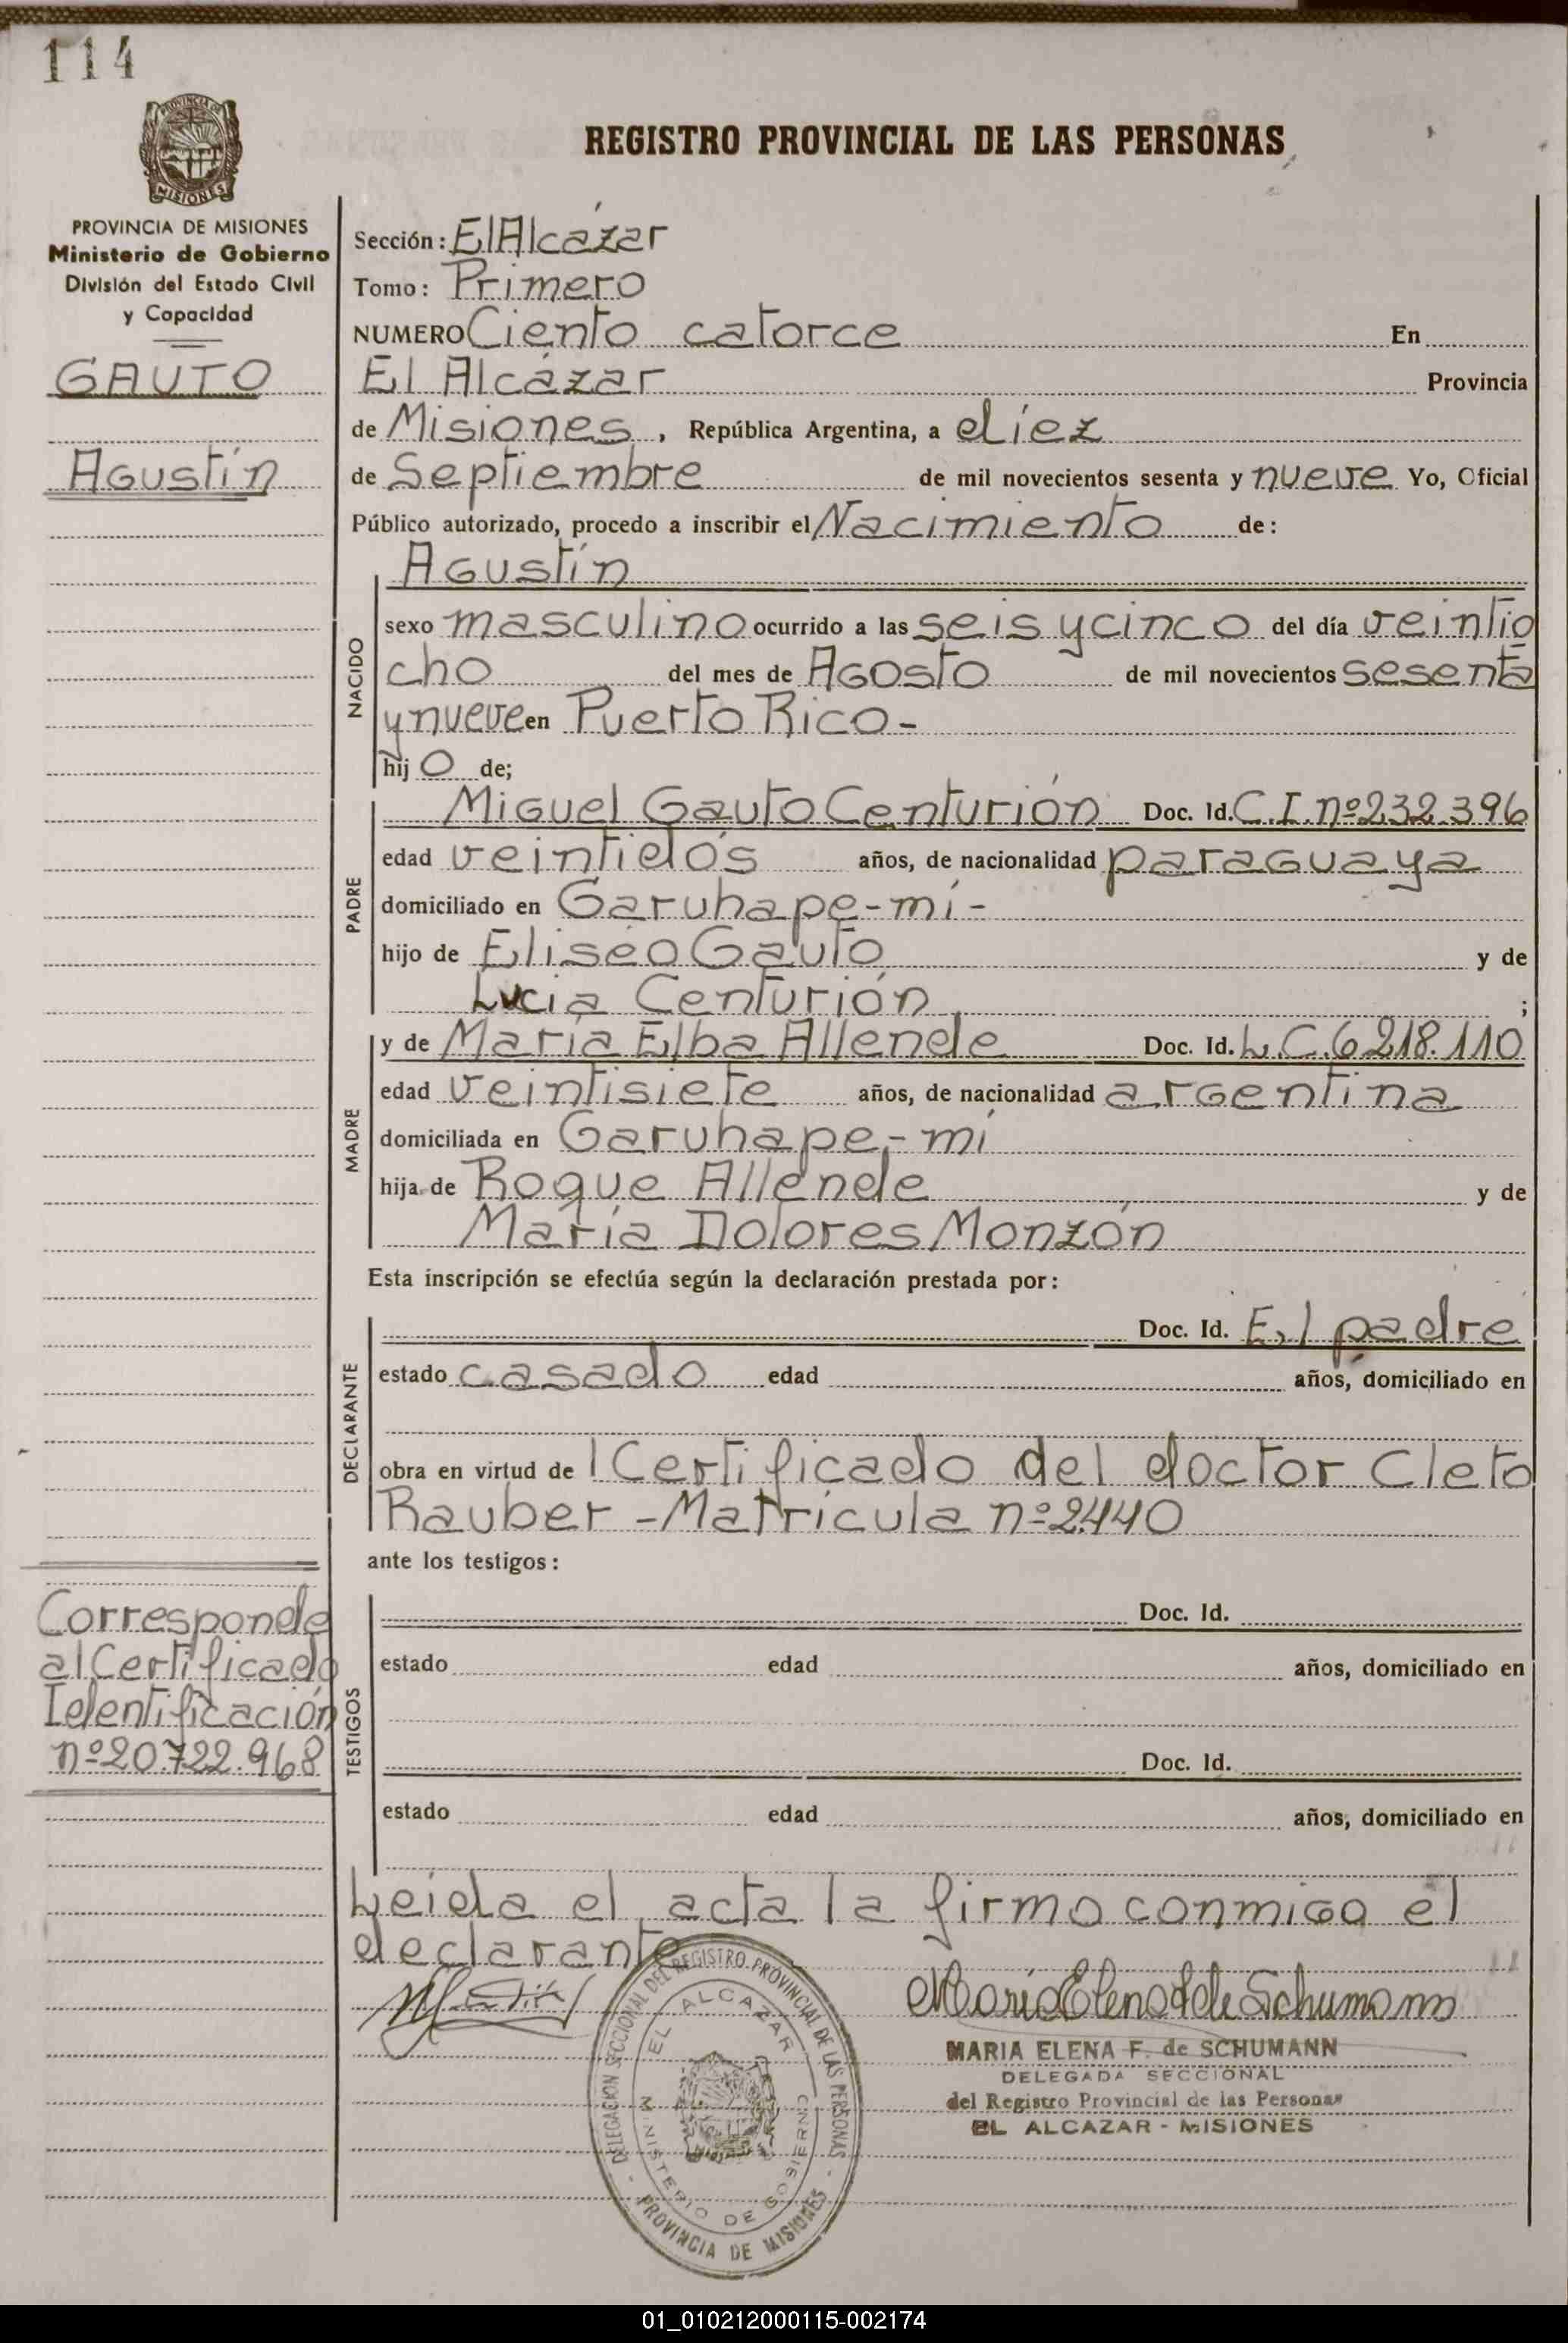 114
REGISTRO PROVINCIAL DE LAS PERSONAS
PROVINCIA DE MISIONES
PROVINCIA DE MISIONES
Ministerio de Gobierno
División del Estado Civil
y Capacidad
GAUTO
Agustín
Sección: El Alcázar
Tomo: Primero
NUMERO Ciento catorce En
El Alcázar Provincia
de Misiones, República Argentina, a diez
de Septiembre de mil novecientos sesenta y nueve Yo, Oficial
Público autorizado, procedo a inscribir el Nacimiento de:
Agustín
NACIDO
sexo masculino ocurrido a las seis y cinco del día veintio
cho del mes de Agosto de mil novecientos sesenta
y nueve en Puerto Rico-
hijo de;
PADRE
Miguel Gauto Centurión Doc. Id. C.I. nº 232.396
edad veintidós años, de nacionalidad paraguaya
domiciliado en Garuhape-mí-
hijo de Eliséo Gauto y de
Lucia Centurión ;
MADRE
y de María Elba Allende Doc. Id. L.C. 6218.110
edad veintisiete años, de nacionalidad argentina
domiciliada en Garuhape-mí
hija de Roque Allende y de
María Dolores Monzón
Esta inscripción se efectúa según la declaración prestada por:
DECLARANTE
Doc. Id. El padre
estado casado edad años, domiciliado en
obra en virtud de l Certificado del doctor Cleto
Rauber - Matrícula nº 2440
ante los testigos:
TESTIGOS
Doc. Id.
estado edad años, domiciliado en
Doc. Id.
estado edad años, domiciliado en
Corresponde
al Certificado
Identificación
nº 20.722.968
Leida el acta la firmo conmigo el
declarante
DELEGACION SECCIONAL DEL REGISTRO PROVINCIAL DE LAS PERSONAS
EL ALCAZAR
MINISTERIO DE GOBIERNO
PROVINCIA DE MISIONES
María Elena F de Schumann
MARIA ELENA F. de SCHUMANN
DELEGADA SECCIONAL
del Registro Provincial de las Personas
EL ALCAZAR - MISIONES
01_010212000115-002174